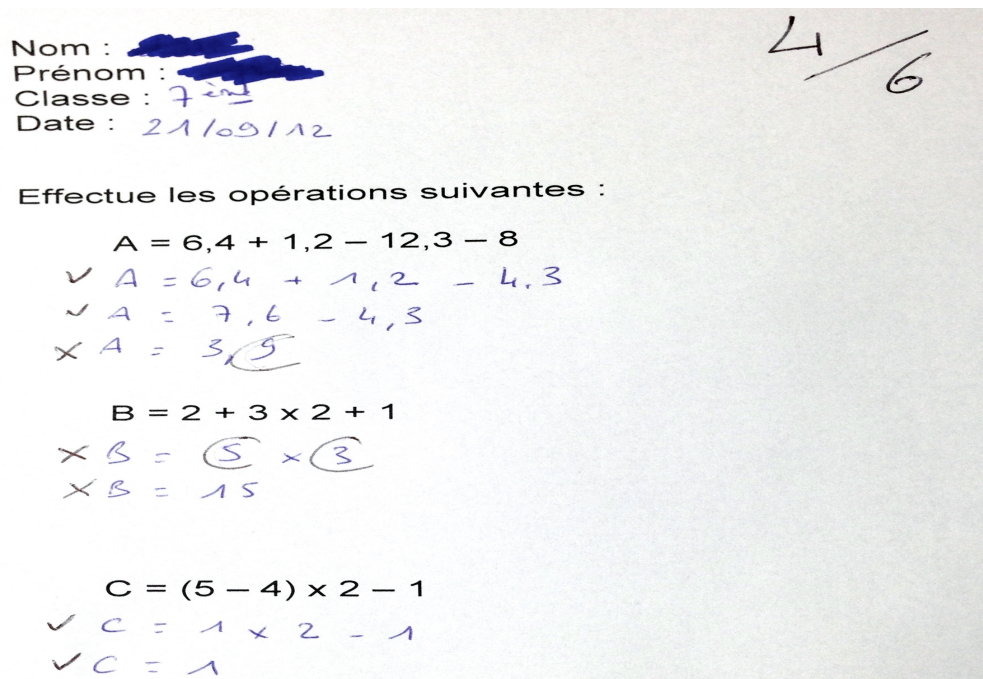 4/6
Nom :
Prénom :
Classe : 7ème
Date : 21/09/12
Effectue les opérations suivantes :
A = 6,4 + 1,2 – 12,3 – 8
✓ A = 6,4 + 1,2 - 4,3
✓ A = 7,6 - 4,3
× A = 3,9
B = 2 + 3 x 2 + 1
× B = 5 × 3
× B = 15
C = (5 – 4) x 2 – 1
✓ C = 1 × 2 - 1
✓ C = 1